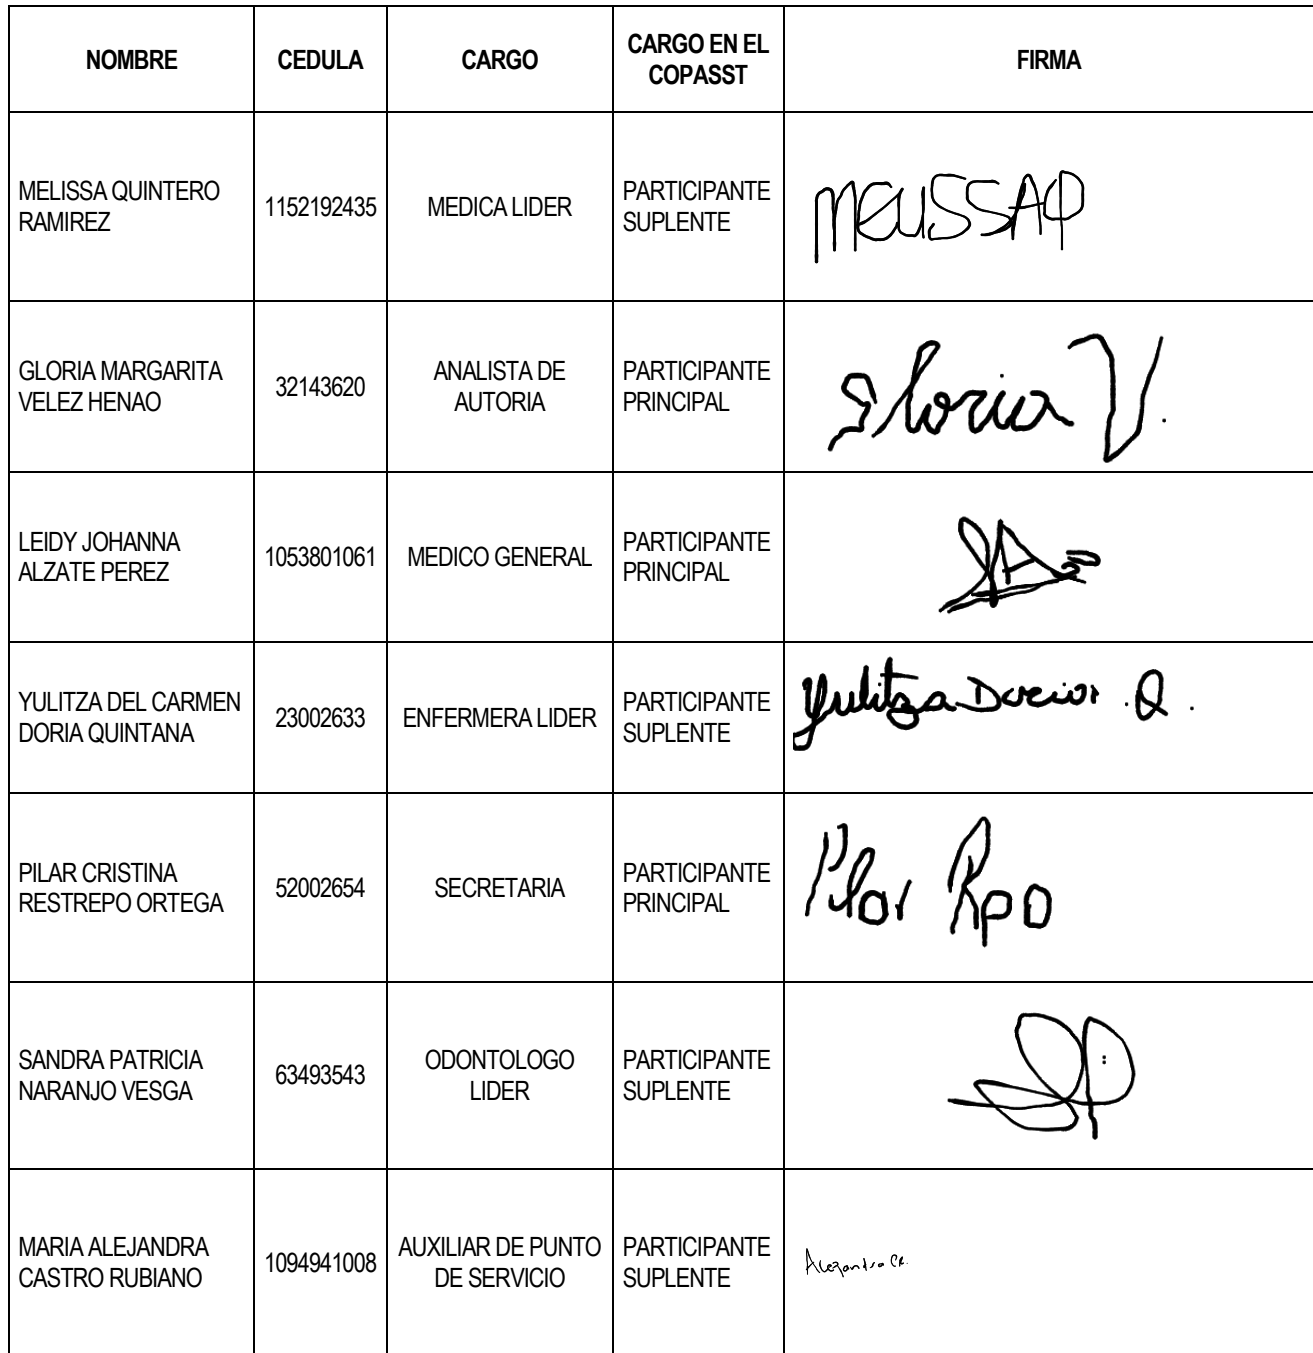 NOMBRE CEDULA CARGO CARGO EN EL COPASST FIRMA
MELISSA QUINTERO RAMIREZ 1152192435 MEDICA LIDER PARTICIPANTE SUPLENTE MELISSAQ
GLORIA MARGARITA VELEZ HENAO 32143620 ANALISTA DE AUTORIA PARTICIPANTE PRINCIPAL Gloria V.
LEIDY JOHANNA ALZATE PEREZ 1053801061 MEDICO GENERAL PARTICIPANTE PRINCIPAL
YULITZA DEL CARMEN DORIA QUINTANA 23002633 ENFERMERA LIDER PARTICIPANTE SUPLENTE Yulitza Doria . Q .
PILAR CRISTINA RESTREPO ORTEGA 52002654 SECRETARIA PARTICIPANTE PRINCIPAL Pilar Rpo
SANDRA PATRICIA NARANJO VESGA 63493543 ODONTOLOGO LIDER PARTICIPANTE SUPLENTE
MARIA ALEJANDRA CASTRO RUBIANO 1094941008 AUXILIAR DE PUNTO DE SERVICIO PARTICIPANTE SUPLENTE Alejandra CR.